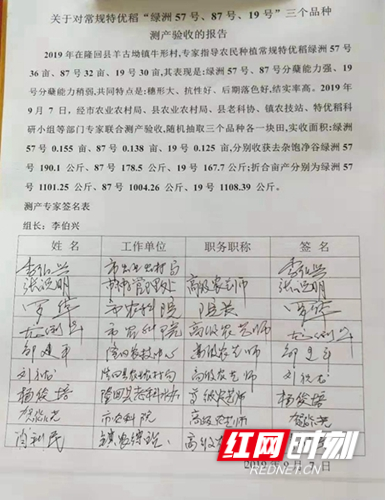 关于对常规特优稻“绿洲 57 号、87 号、19 号”三个品种
测产验收的报告
2019 年在隆回县羊古坳镇牛形村,专家指导农民种植常规特优稻绿洲 57 号
36 亩、87 号 32 亩、19 号 30 亩,其表现是:绿洲 57 号、87 号分蘖能力强、19
号分蘖能力稍弱,共同特点是:穗形大、抗性好、后期落色好,结实率高。2019 年
9 月 7 日,经市农业农村局、县农业农村局、县老科协、镇农技站、特优稻科
研小组等部门专家联合测产验收,随机抽取三个品种各一块田,实收面积:绿洲
57 号 0.155 亩、87 号 0.138 亩、19 号 0.125 亩,分别收获去杂饱净谷绿洲 57
号 190.1 公斤、87 号 178.5 公斤、19 号 167.7 公斤;折合亩产分别为绿洲 57
号 1101.25 公斤、87 号 1004.26 公斤、19 号 1108.39 公斤。
测产专家签名表
组长:李伯兴
姓 名 工作单位 职务职称 签 名
李伯兴 李伯兴
高级农艺师
市农科院 院长
市农科院 高级农艺师
高级农艺师
高级农艺师
杨俊培 隆回县老科协 高级农艺师 杨俊培
市农科院 高级农艺师
高级农
2019 年 9 月 7 日
红网时刻
REDNET.CN